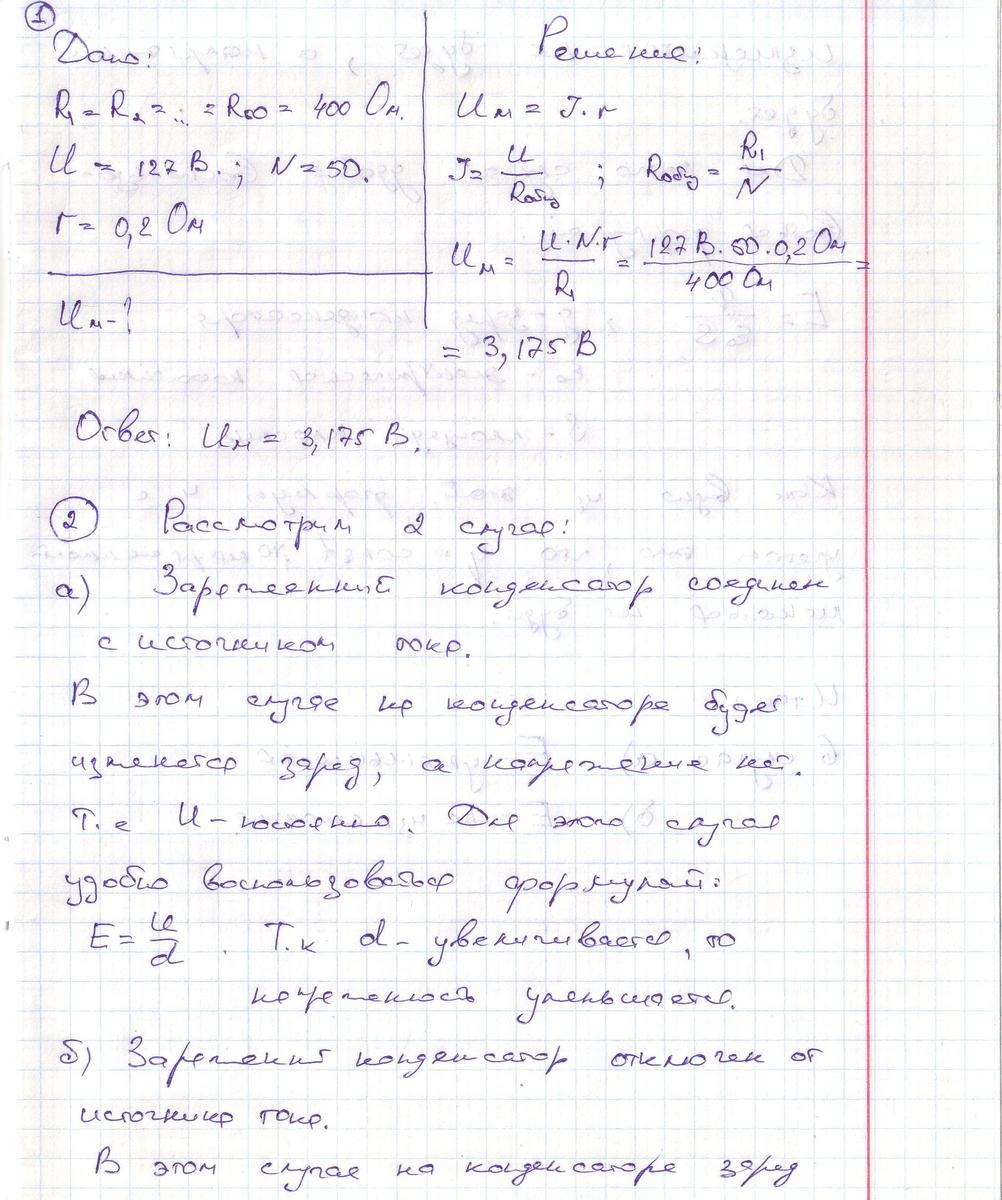 1
Дано:
R₁ = R₂ = ... = R₅₀ = 400 Ом.
U = 127 В.; N = 50.
r = 0,2 Ом
Uм - ?
Решение:
Uм = I · r
I = U / Rобщ ; Rобщ = R₁ / N
Uм = U · N · r / R₁ = 127 В · 50 · 0,2 Ом / 400 Ом =
= 3,175 В
Ответ: Uм = 3,175 В.
2 Рассмотрим 2 случая:
а) Заряженный конденсатор соединен
с источником тока.
В этом случае на конденсаторе будет
изменятся заряд, а напряжение нет.
Т.е U - постоянно. Для этого случая
удобно воспользоваться формулай:
E = U / d . Т.к d - увеличивается, то
напряженность уменьшается.
б) Заряженит конденсатор отключен от
источника тока.
В этом случае на конденсаторе заряд